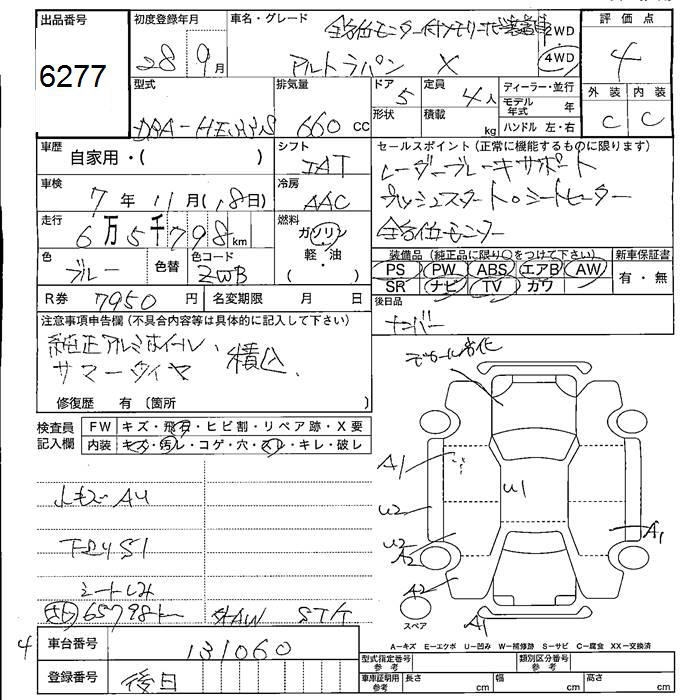 出品番号
6277
初度登録年月
28 9月
車名・グレード
全方位モニター付メモリーナビ装着車
アルトラパン X
2WD
4WD
評価点
4
外装 内装
C C
型式
DAA-HE33S
排気量
660 cc
ドア
5
形状
定員
4人
積載
kg
ディーラー・並行
モデル年式 年
ハンドル 左・右
車歴
自家用・( )
シフト
IAT
冷房
AAC
車検
7年11月(18日)
走行
6万5千798km
燃料
ガソリン
軽・油
( ・ )
色
ブルー
色替
色コード
ZWB
R券 7950円
名変期限 月 日
セールスポイント(正常に機能するものに限ります)
レーダーブレーキサポート
プッシュスタート。シートヒーター
全方位モニター
装備品(純正品に限り○をつけて下さい)
PS PW ABS エアB AW
SR ナビ TV カワ
新車保証書
有・無
後日品
ナンバー
注意事項申告欄(不具合内容等は具体的に記入して下さい)
純正アルミホイール、
サマータイヤ 積込
修復歴 有〔箇所 〕
検査員記入欄
FW キズ・飛石・ヒビ割・リペア跡・X要
内装 キズ・汚レ・コゲ・穴・スレ・キレ・破レ
小キズ AU
下回りS1
シートしみ
65798km 外AW STK
4
車台番号
131060
登録番号
後日
A1
U1
U2
U2
A2
A2
A1
A1
スペア
A-キズ E-エクボ U-凹み W-補修跡 S-サビ C-腐食 XX-交換済
型式指定番号 参考
類別区分番号 参考
車庫証明用 参考
長さ cm
幅 cm
高さ cm